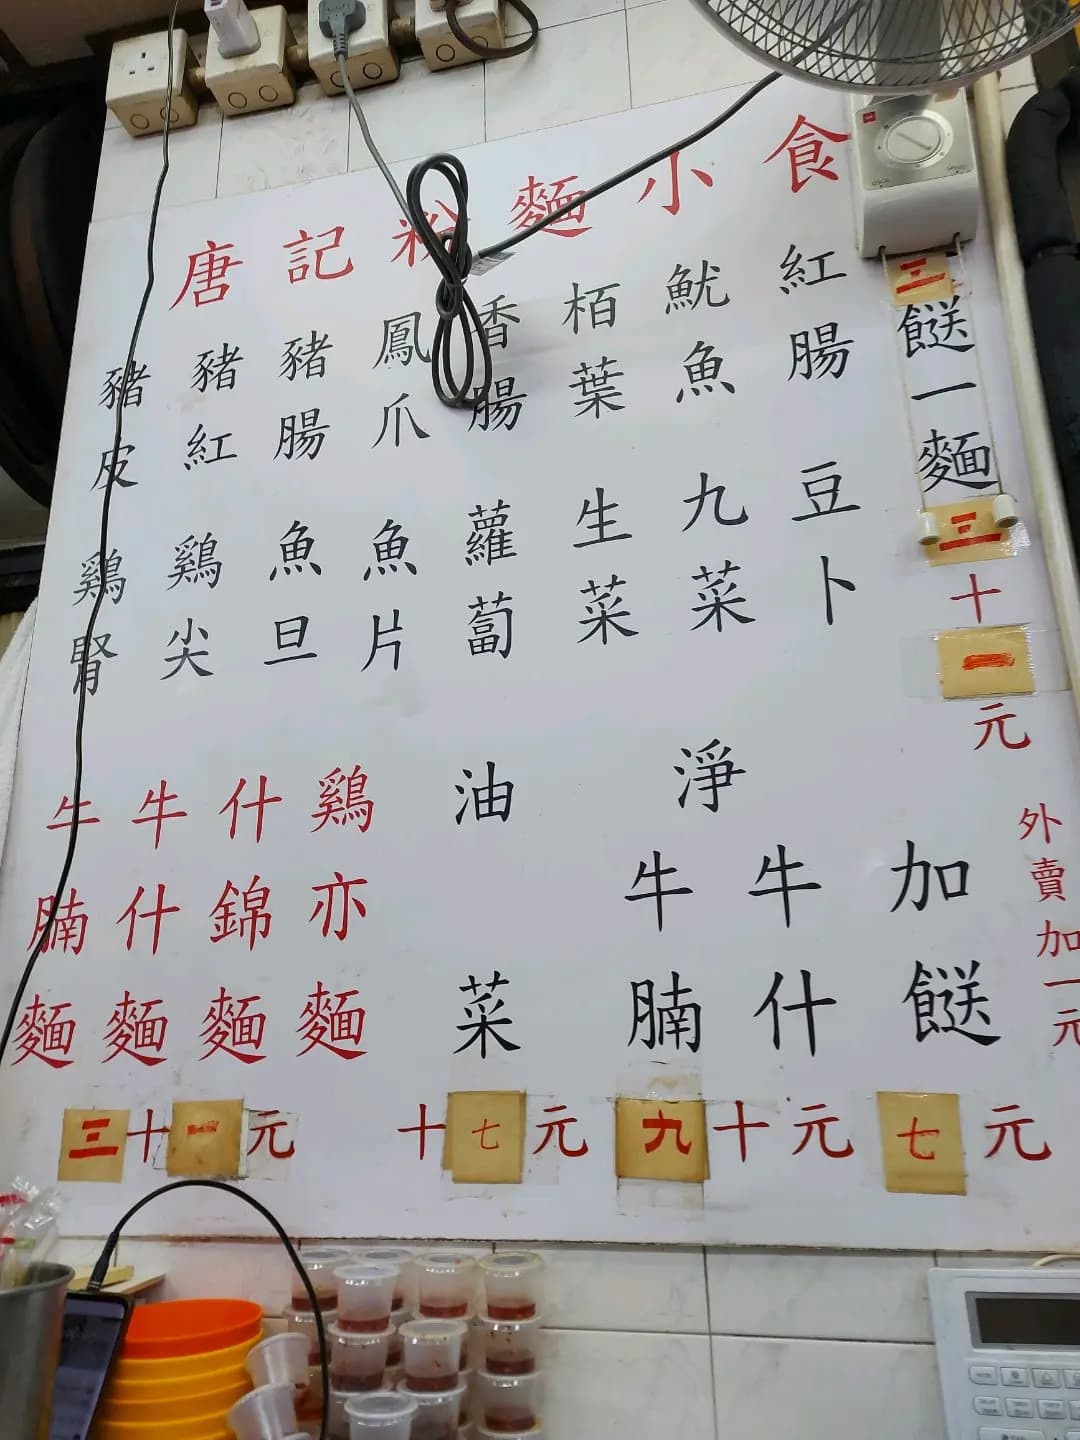 唐記粉麵小食
外賣加一元
三餸一麵三十一元
紅腸
魷魚
栢葉
香腸
鳳爪
豬腸
豬紅
豬皮
豆卜
九菜
生菜
蘿蔔
魚片
魚旦
鷄尖
鷄腎
加餸
七元
淨牛什
淨牛腩
九十元
油菜
十七元
鷄亦麵
什錦麵
牛什麵
牛腩麵
三十一元